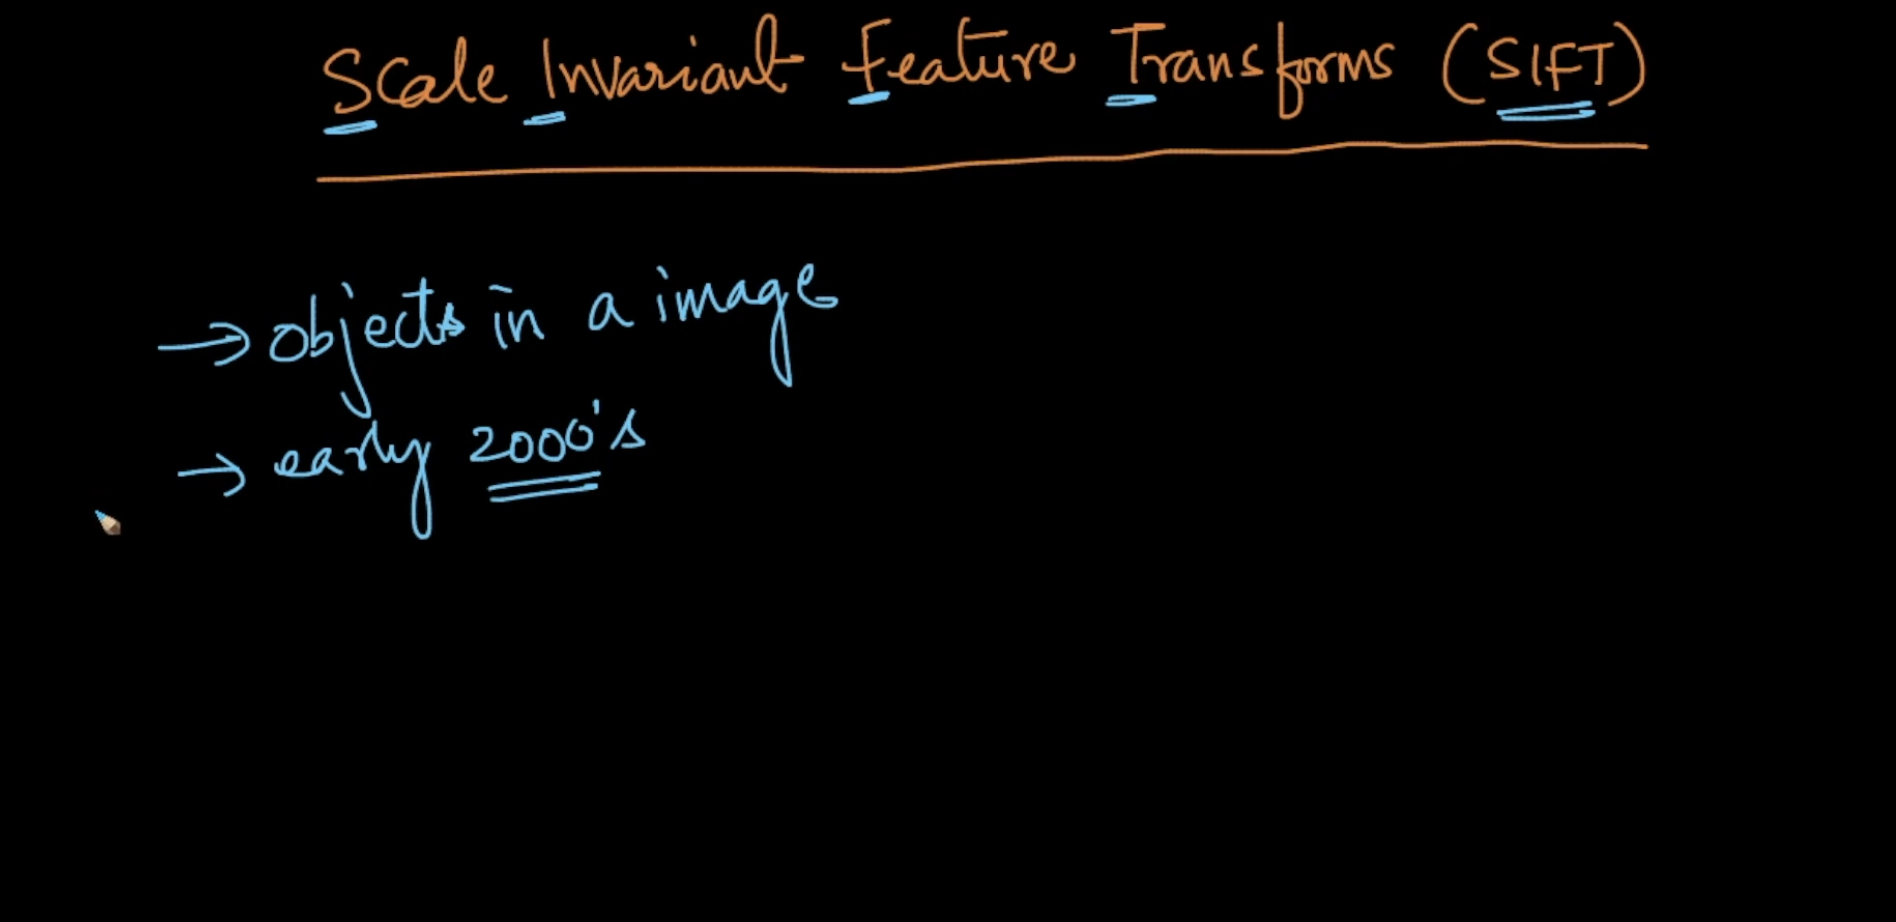 Scale Invariant Feature Transforms (SIFT)
→ objects in a image
→ early 2000's